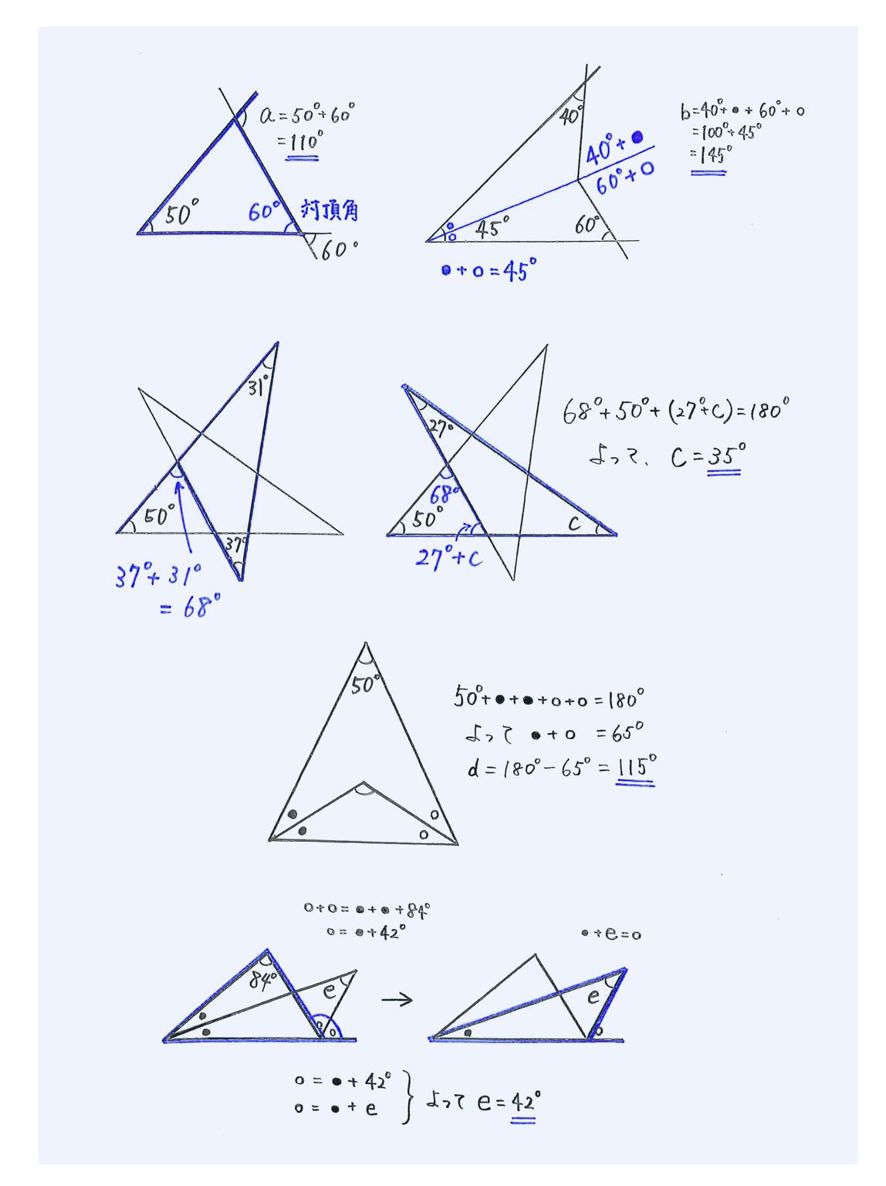 a=50°+60°
=110°
50°
60°
対頂角
60°
40°
40°+●
60°+○
●
○
45°
60°
●+○=45°
b=40°+●+60°+○
=100°+45°
=145°
31°
50°
37°
37°+31°
=68°
27°
68°
50°
c
27°+c
68°+50°+(27°+c)=180°
よって、c=35°
50°
● ○
● ○
50°+●+●+○+○=180°
よって ●+○ =65°
d=180°-65°=115°
○+○=●+●+84°
○=●+42°
84°
e
●
●
○ ○
→
●+e=○
e
●
○
○=●+42°
○=●+e
よって e=42°